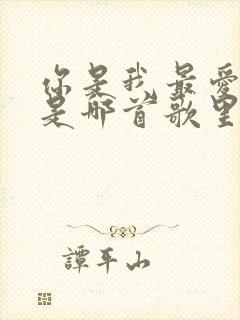 你是我最愛
是那首歌里
譚平山